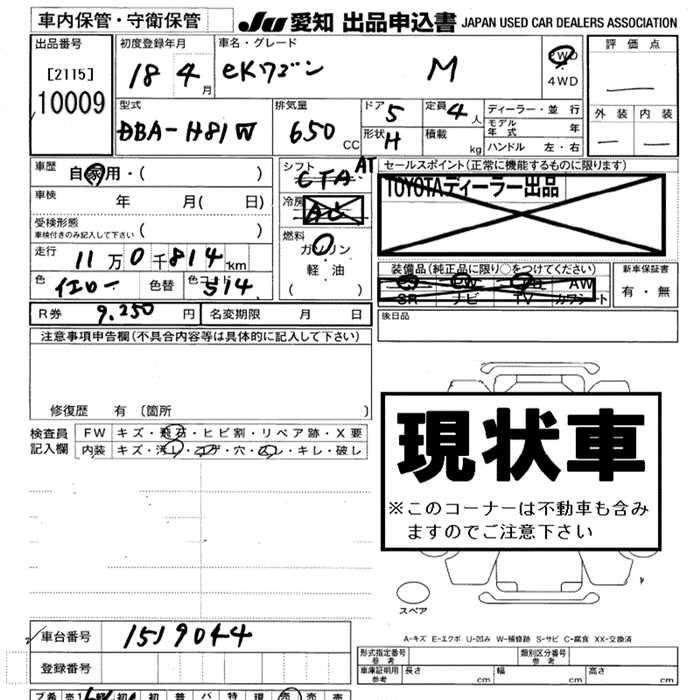 車内保管・守衛保管
JU 愛知 出品申込書 JAPAN USED CAR DEALERS ASSOCIATION
出品番号 初度登録年月 車名・グレード 評価点
[2115] 18 4 月 eKワゴン M 2WD
10009 4WD
型式 排気量 ドア 5 定員 4 人 ディーラー・並行 外装 内装
DBA-H81W 650 CC 形状 H 積載 kg モデル年式 年
ハンドル 左・右
車歴 自家用・( ) シフト AT セールスポイント(正常に機能するものに限ります)
車検 年 月( 日) CTA TOYOTAディーラー出品
受検形態 ( ) 冷房 AC
車検付きのみ記入して下さい
走行 11万0千814km 燃料 ガソリン
軽・油
( )
色 イエロー 色替 色コード 514
装備品(純正品に限り○をつけてください) 新車保証書
AW 有・無
SR ナビ TV カワシート
R券 9,250 円 名変期限 月 日 後日品
注意事項申告欄(不具合内容等は具体的に記入して下さい)
修復歴 有 〔箇所 〕
検査員 FW キズ・飛石・ヒビ割・リペア跡・X要
記入欄 内装 キズ・汚レ・コゲ・穴・スレ・キレ・破レ
現状車
※このコーナーは不動車も含み
ますのでご注意下さい
スペア
A-キズ E-エクボ U-凹み W-補修跡 S-サビ C-腐食 XX-交換済
車台番号 1519044
登録番号
形式指定番号 参考 類別区分番号 参考
車庫証明用 参考 長さ cm 幅 cm 高さ cm